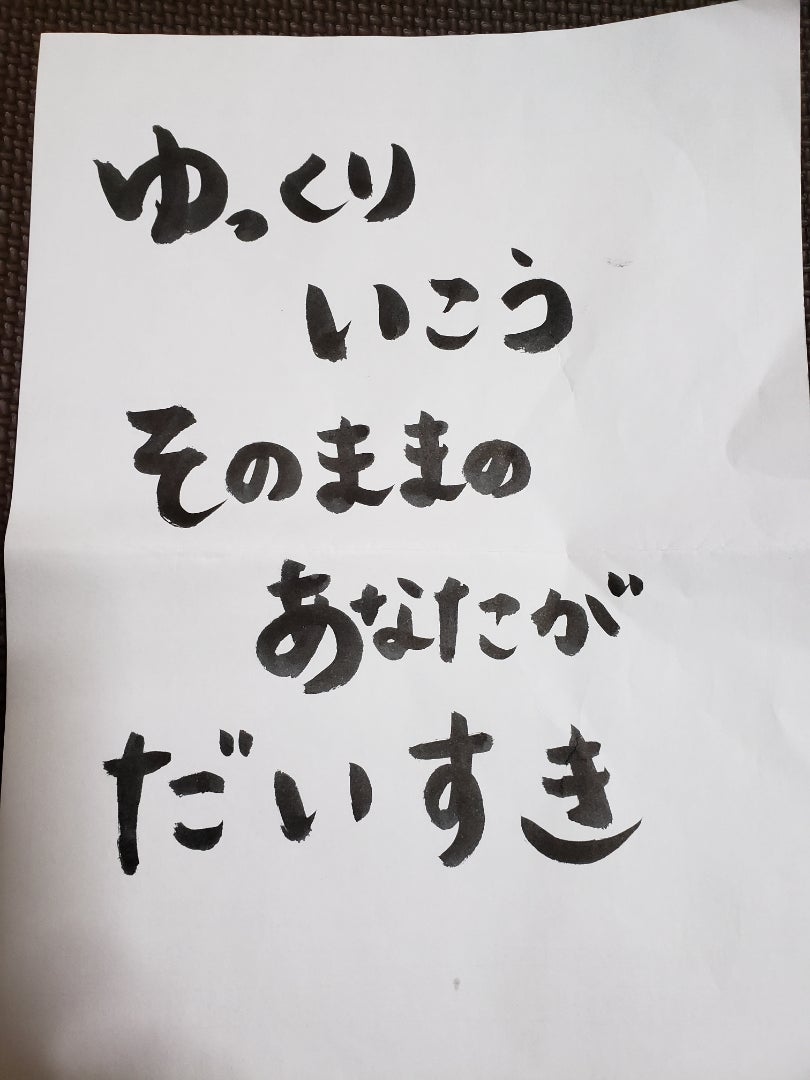 ゆっくり
いこう
そのままの
あなたが
だいすき